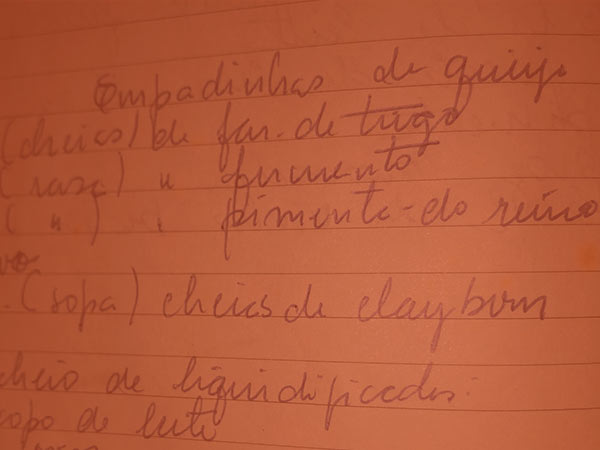 Empadinhas de queijo
(cheias) de far. de trigo
(rasa) " fermento
( " ) " pimenta-do reino
(sopa) cheias de claybom
cheio de liquidificador
copo de leite